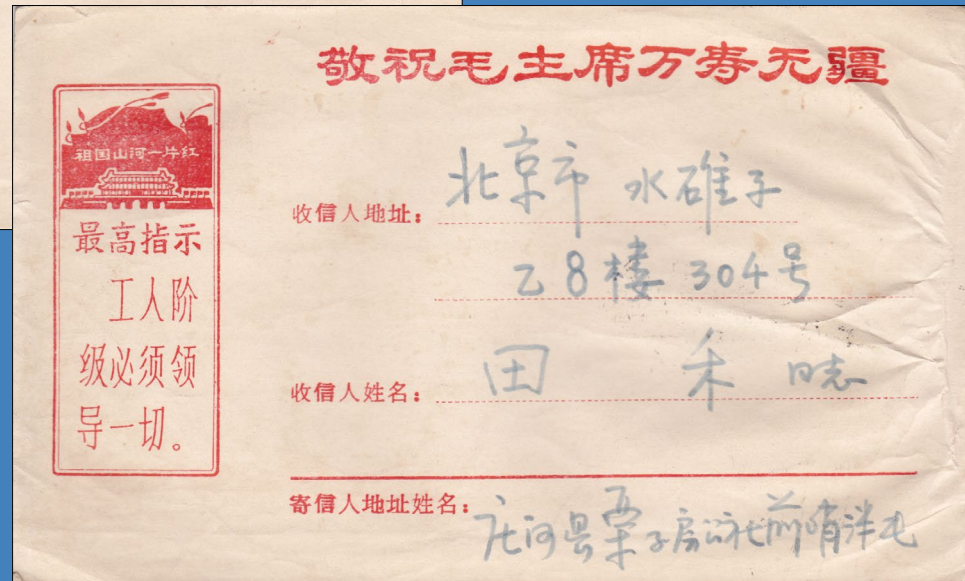 敬祝毛主席万寿无疆
祖国山河一片红
最高指示
工人阶
级必须领
导一切。
收信人地址：北京市 水碓子
乙8楼 304号
收信人姓名：田 禾 同志
寄信人地址姓名：庄河县栗子房公社前哨洋屯